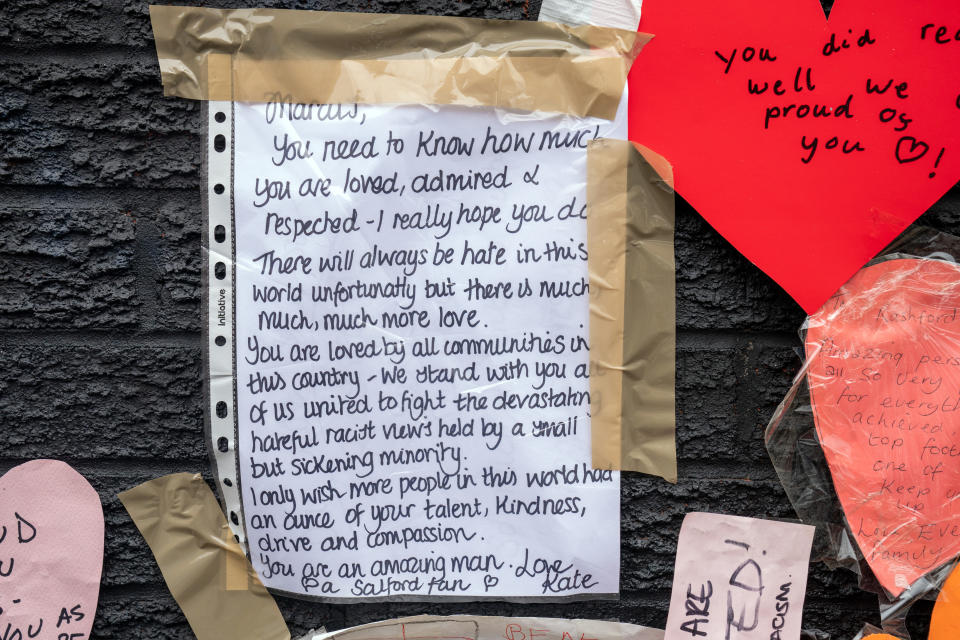 Marcus,
You need to know how much
you are loved, admired &
respected - I really hope you do
There will always be hate in this
world unfortunatly but there is much
much, much more love.
You are loved by all communities in
this country - we stand with you all
of us united to fight the devastating
hateful racist views held by a small
but sickening minority.
I only wish more people in this world had
an ounce of your talent, kindness,
drive and compassion.
You are an amazing man. Love
♡ a Salford fan ♡ Kate
Initiative
you did
well we
proud of
you ♡!
Rashford
Amazing
all so very
for
achieved
top
one of
Keep
up
Love
Family
AS
ARE
ED!